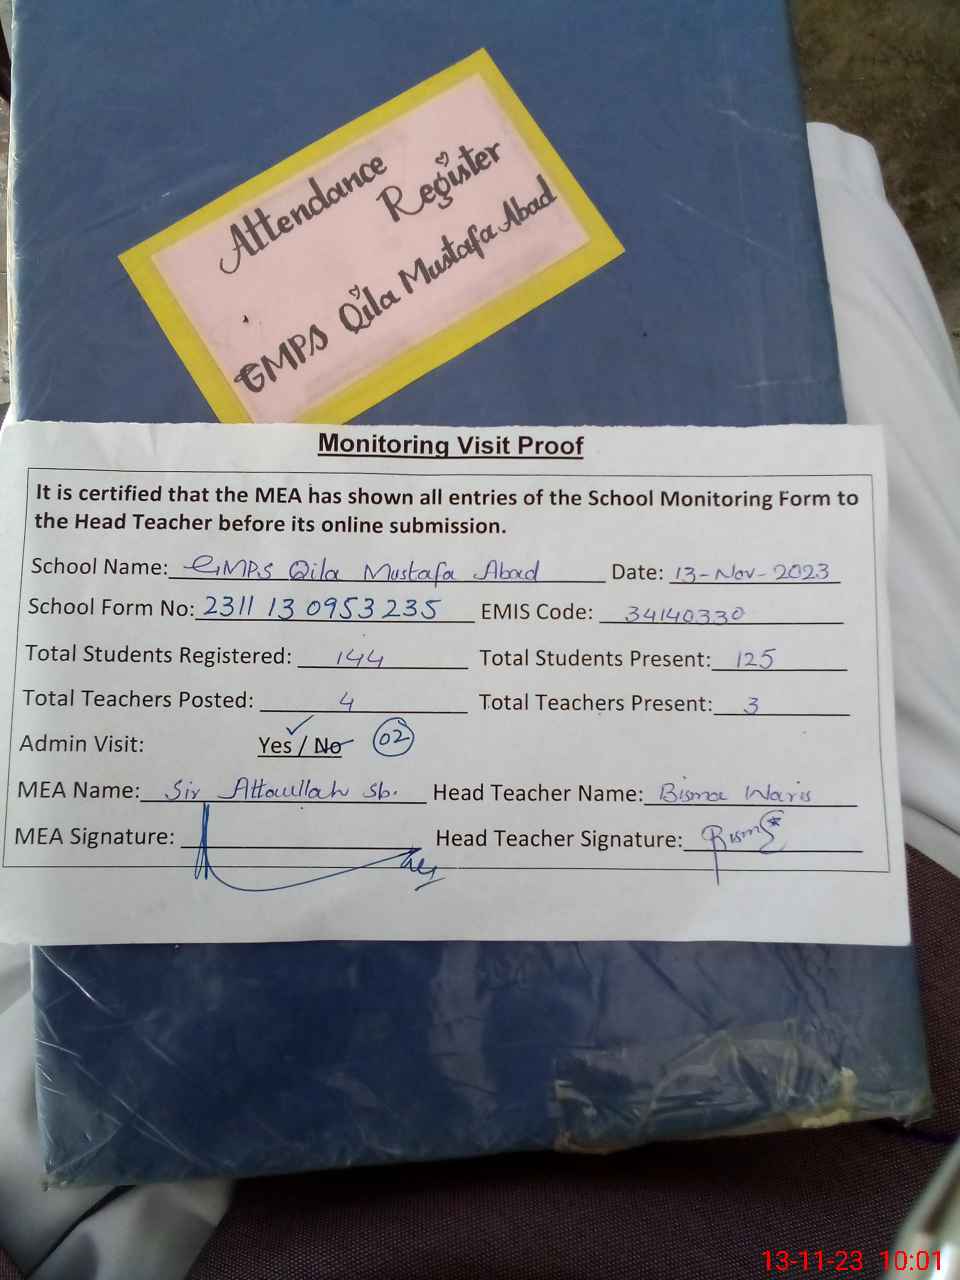 Attendance
Register
GMPS Qila Mustafa Abad
Monitoring Visit Proof
It is certified that the MEA has shown all entries of the School Monitoring Form to
the Head Teacher before its online submission.
School Name: GMPS Qila Mustafa Abad Date: 13-Nov-2023
School Form No: 2311 13 0953 235 EMIS Code: 34140330
Total Students Registered: 144 Total Students Present: 125
Total Teachers Posted: 4 Total Teachers Present: 3
Admin Visit: Yes / No 02
MEA Name: Sir Attaullah Sb. Head Teacher Name: Bisma Waris
MEA Signature: Head Teacher Signature: Bisma
13-11-23 10:01